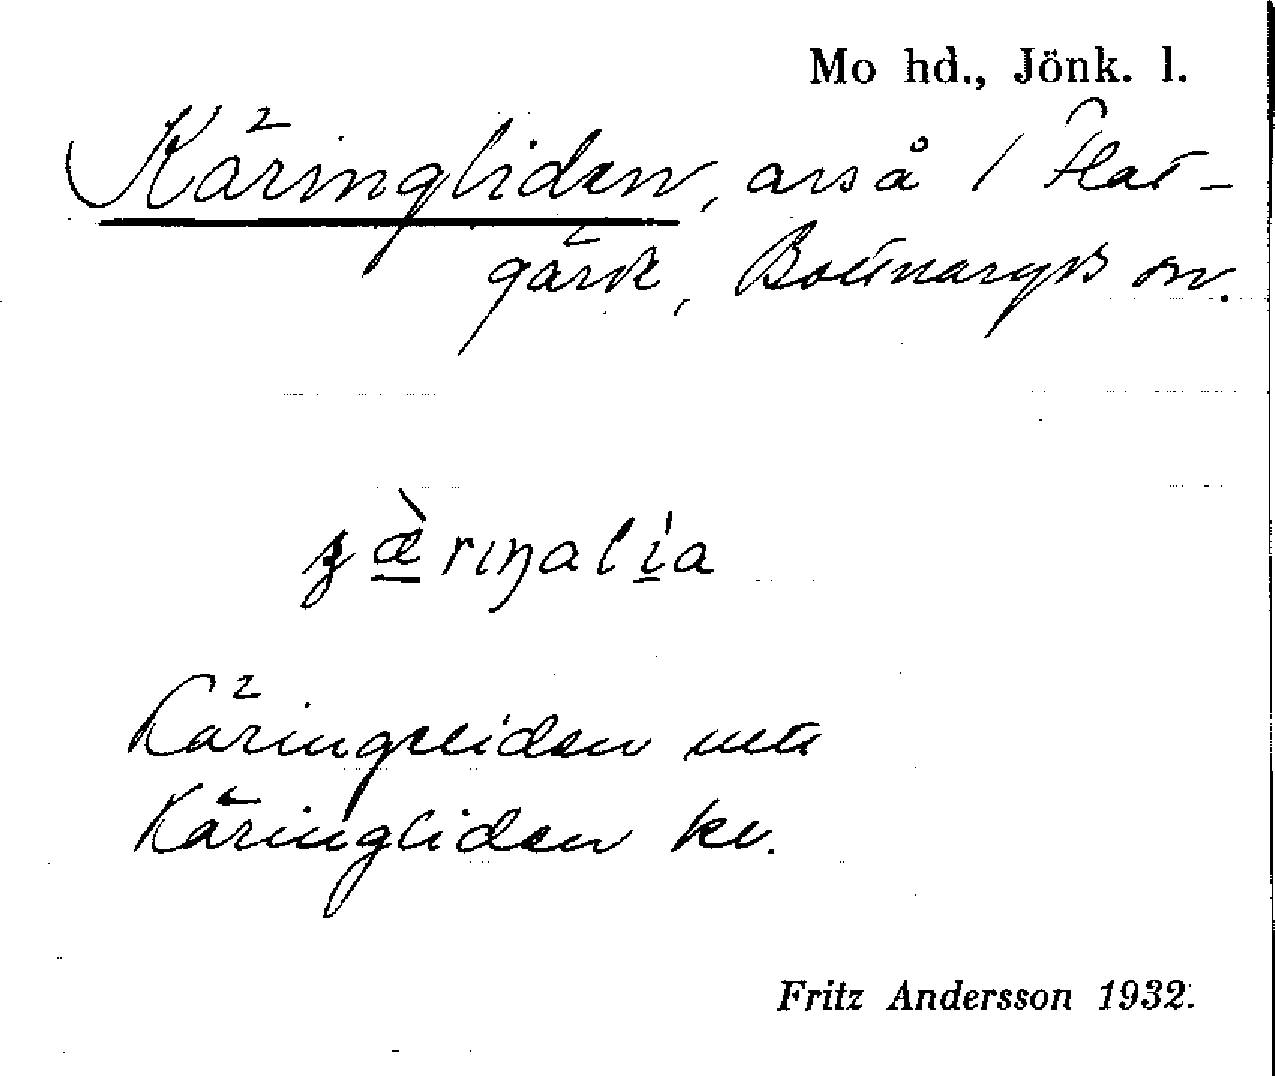 Mo hd., Jönk. l.
Käringliden, avså i Flat-
gärde, Bottnaryds sn.
ʒæ̀rıŋalı́a
Käringeliden uttr
Käringliden kv.
Fritz Andersson 1932.